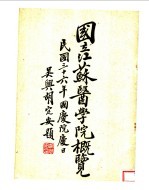 國立江蘇醫學院概覽
民國三十六年國慶院慶日
吳興胡定安題